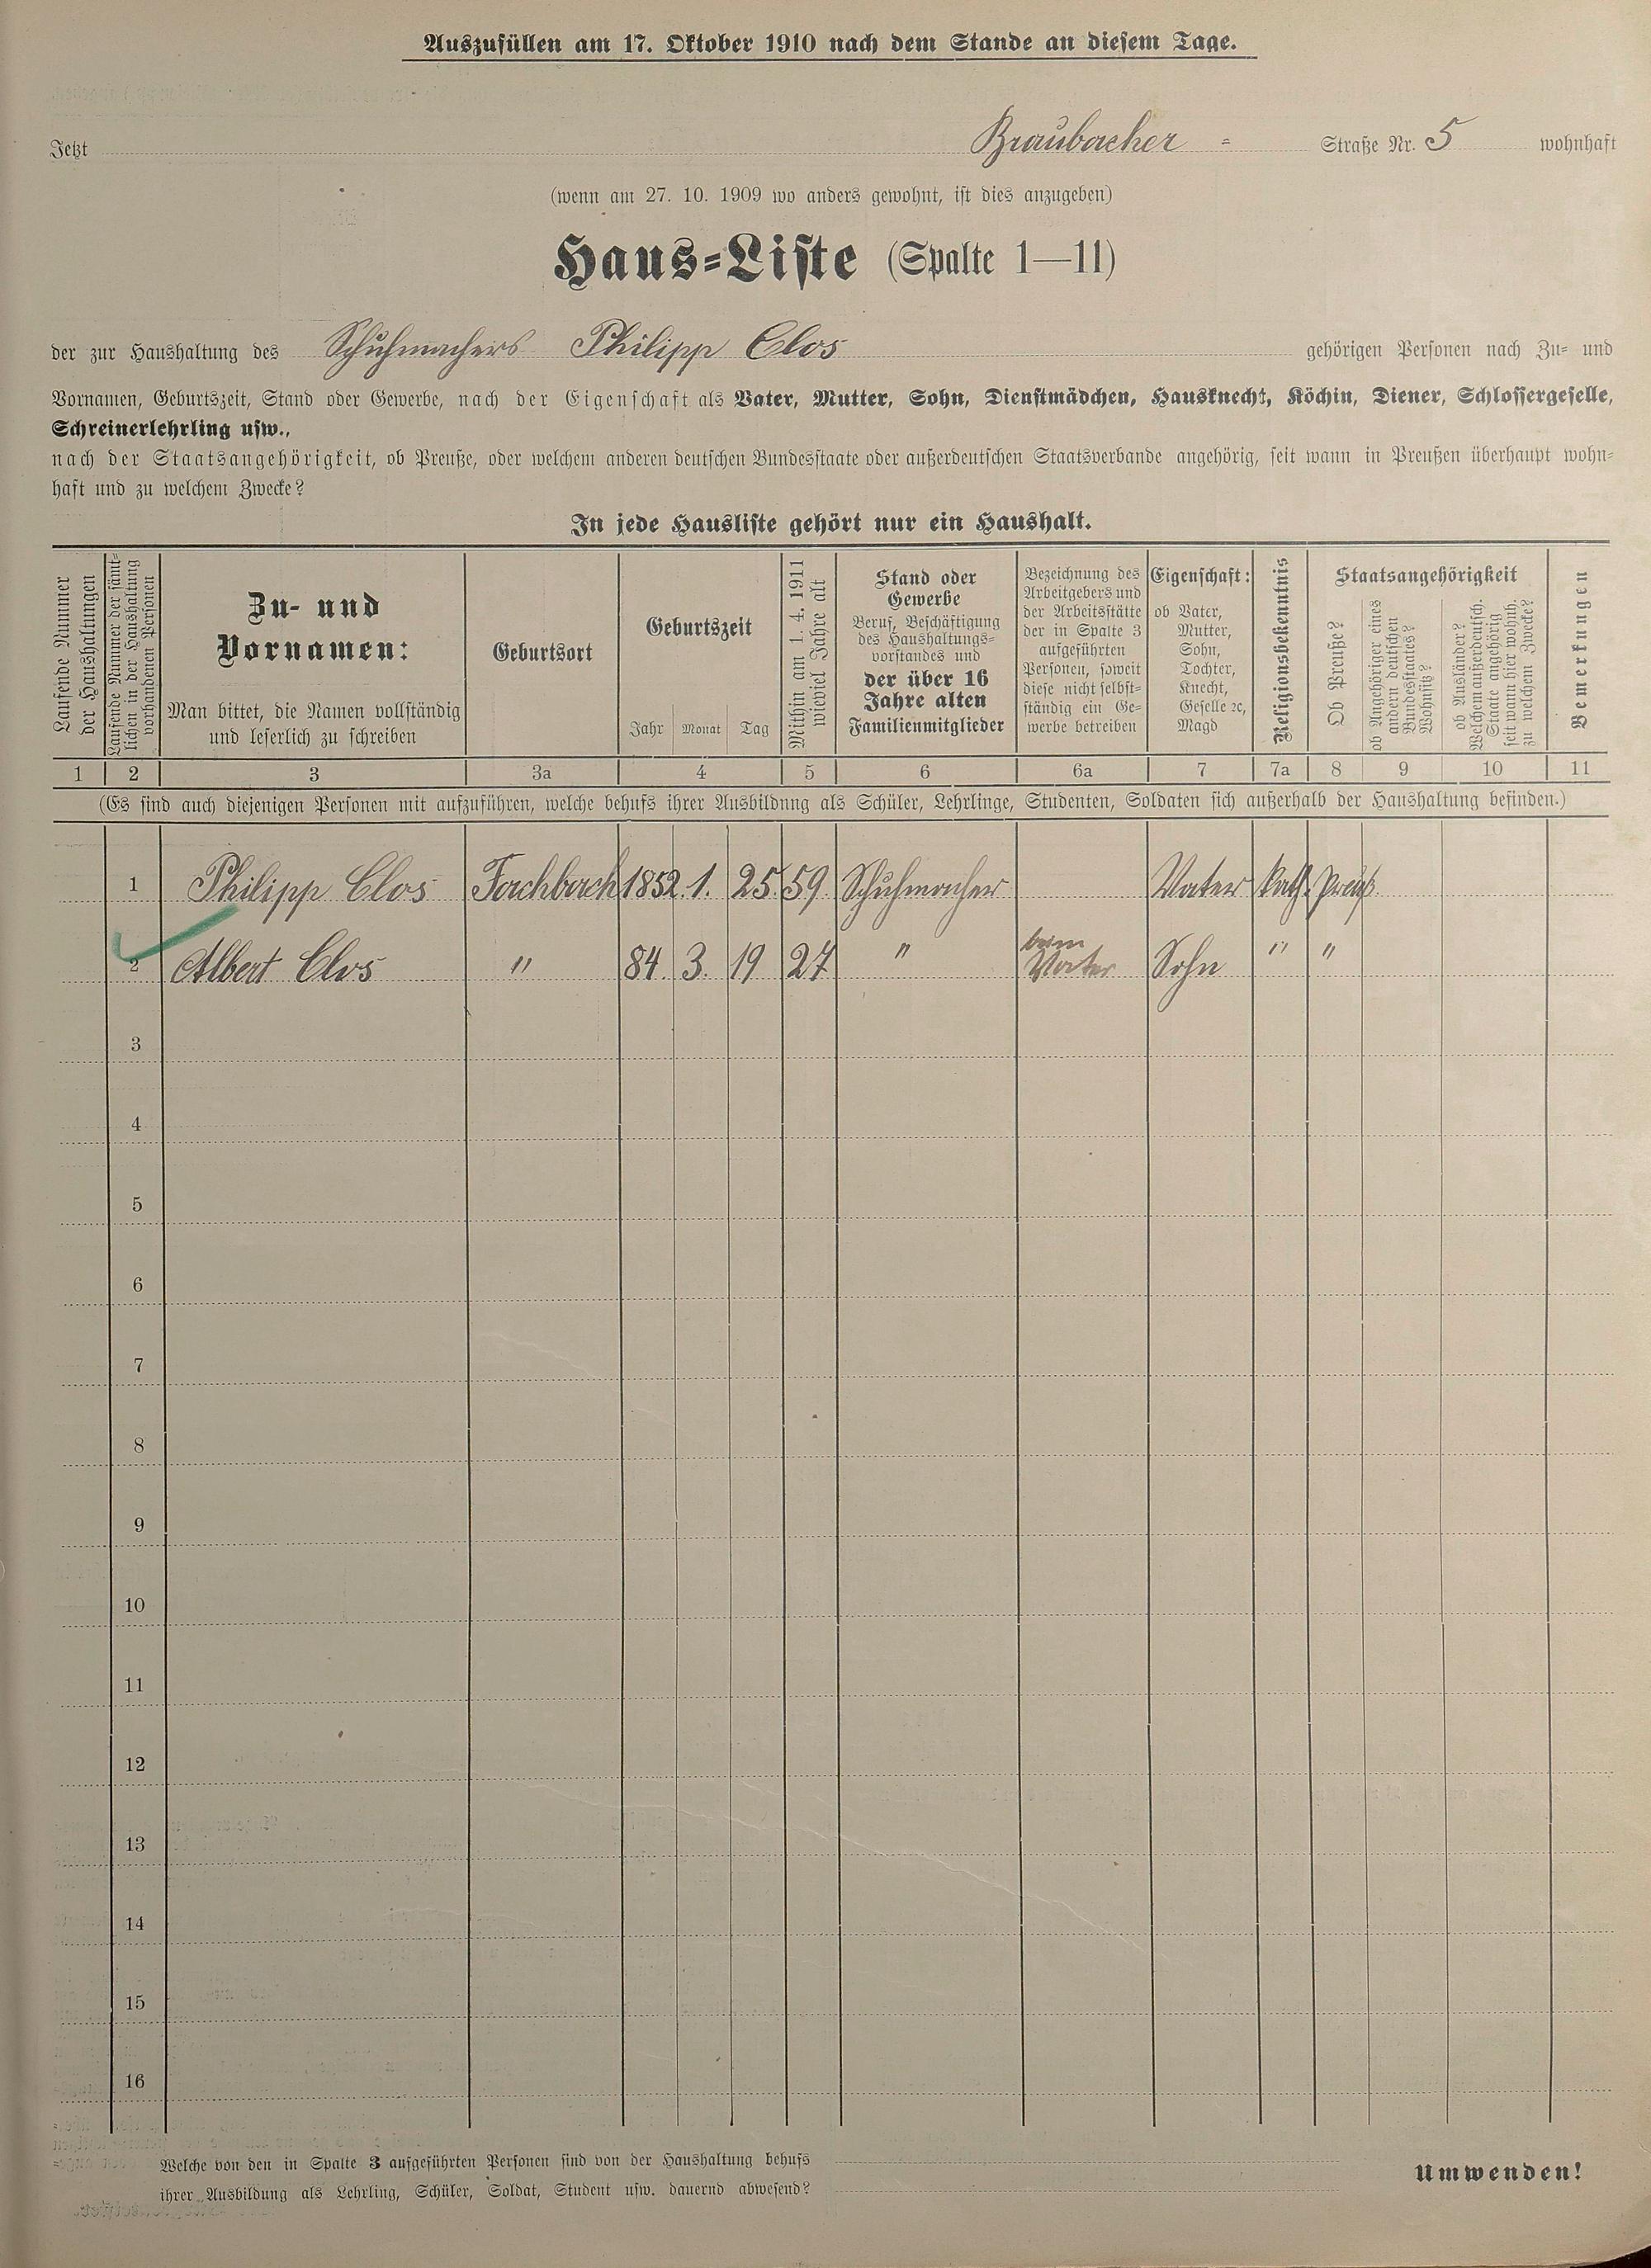 Auszufüllen am 17. Oktober 1910 nach dem Stande an diesem Tage.
Jetzt Braubacher - Straße Nr. 5 wohnhaft
(wenn am 27. 10. 1909 wo anders gewohnt, ist dies anzugeben)
Haus-Liste (Spalte 1—11)
der zur Haushaltung des Schuhmachers Philipp Clos gehörigen Personen nach Zu- und
Vornamen, Geburtszeit, Stand oder Gewerbe, nach der Eigenschaft als Vater, Mutter, Sohn, Dienstmädchen, Hausknecht, Köchin, Diener, Schlossergeselle,
Schreinerlehrling usw.,
nach der Staatsangehörigkeit, ob Preuße, oder welchem anderen deutschen Bundesstaate oder außerdeutschen Staatsverbande angehörig, seit wann in Preußen überhaupt wohn-
haft und zu welchem Zwecke?
In jede Hausliste gehört nur ein Haushalt.
Laufende Nummer
der Haushaltungen
Laufende Nummer der sämt-
lichen in der Haushaltung
vorhandenen Personen
Zu- und
Vornamen:
Man bittet, die Namen vollständig
und leserlich zu schreiben
Geburtsort
Geburtszeit
Jahr Monat Tag
Mithin am 1. 4. 1911
wieviel Jahre alt
Stand oder
Gewerbe
Beruf, Beschäftigung
des Haushaltungs-
vorstandes und
der über 16
Jahre alten
Familienmitglieder
Bezeichnung des
Arbeitgebers und
der Arbeitsstätte
der in Spalte 3
aufgeführten
Personen, soweit
diese nicht selbst-
ständig ein Ge-
werbe betreiben
Eigenschaft:
ob Vater,
Mutter,
Sohn,
Tochter,
Knecht,
Geselle ec,
Magd
Religionsbekenntnis
Staatsangehörigkeit
Ob Preuße?
ob Angehöriger eines
andern deutschen
Bundesstaates?
Wohnsitz?
ob Ausländer?
Welchem außerdeutsch.
Staate angehörig
seit wann hier wohnh.
zu welchem Zwecke?
Bemerkungen
1 2 3 3a 4 5 6 6a 7 7a 8 9 10 11
(Es sind auch diejenigen Personen mit aufzuführen, welche behufs ihrer Ausbildung als Schüler, Lehrlinge, Studenten, Soldaten sich außerhalb der Haushaltung befinden.)
1 Philipp Clos Fachbach 1852. 1. 25. 59. Schuhmacher Vater kath. Preuß.
2 Albert Clos " 84. 3. 19 27 " beim Vater Sohn " "
3
4
5
6
7
8
9
10
11
12
13
14
15
16
Welche von den in Spalte 3 aufgeführten Personen sind von der Haushaltung behufs
ihrer Ausbildung als Lehrling, Schüler, Soldat, Student usw. dauernd abwesend?
Umwenden!